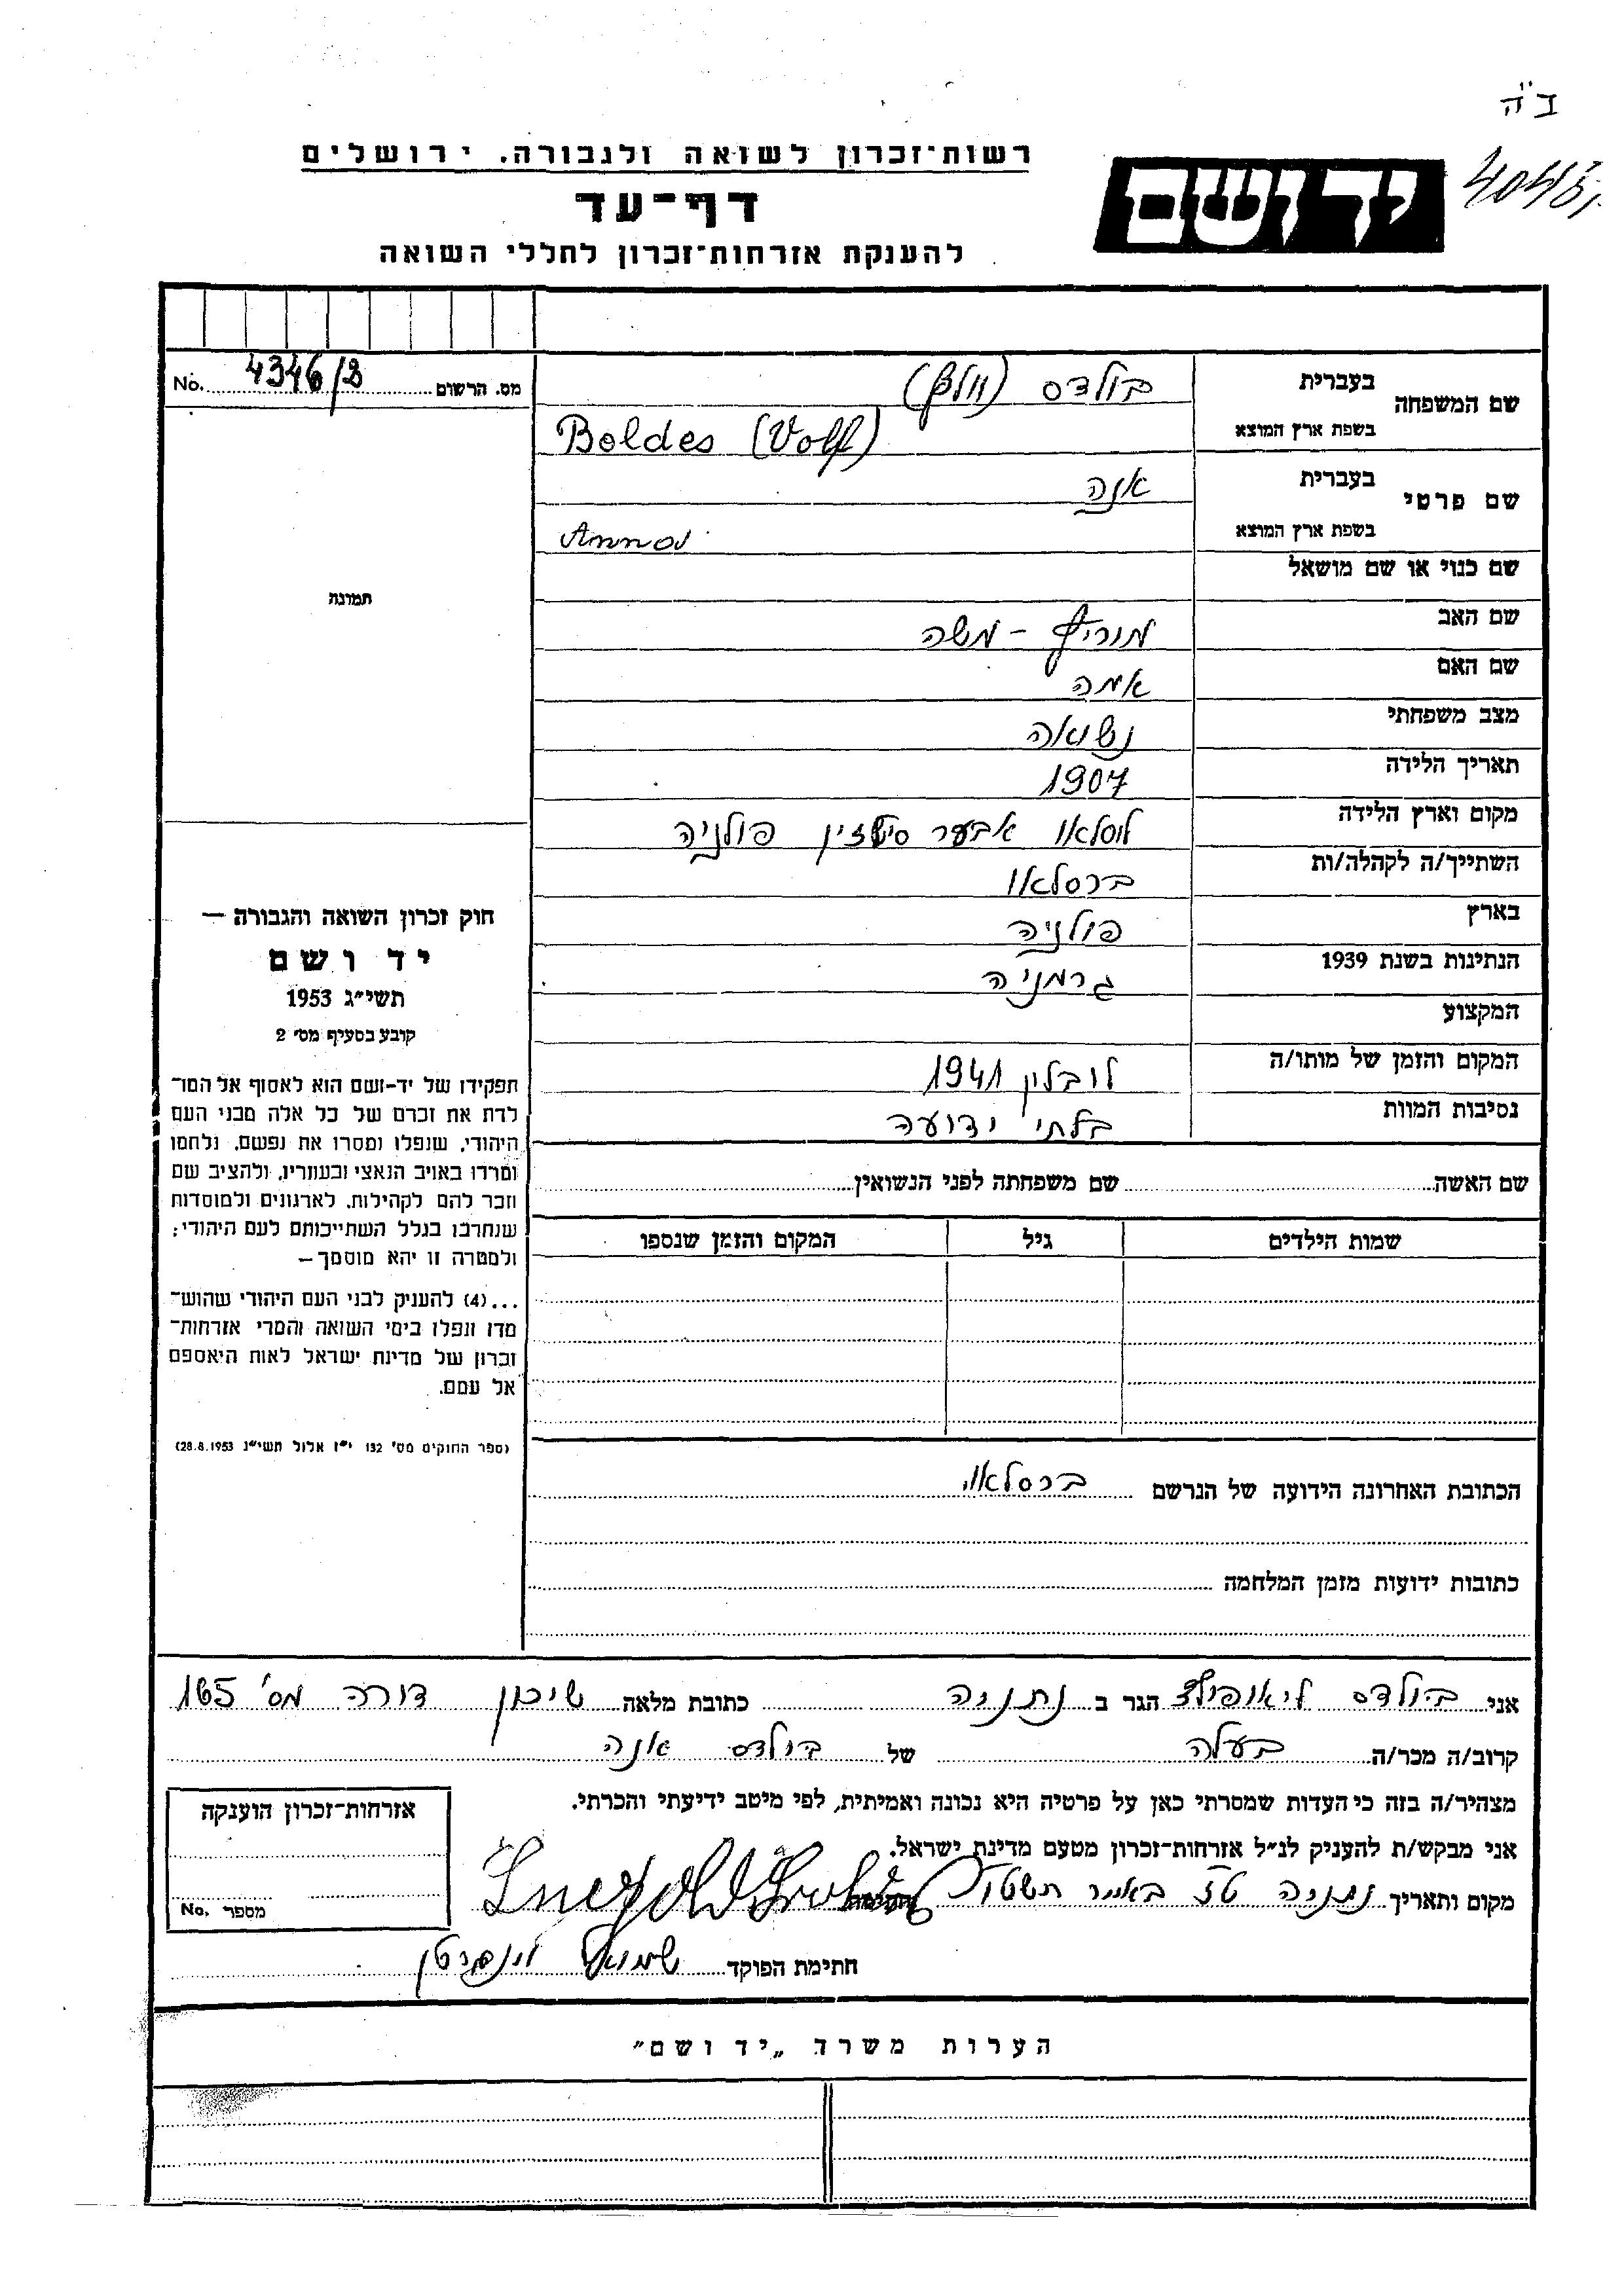 ב"ה
רשות־זכרון לשואה ולגבורה. ירושלים
יד ושם
דף־עד
להענקת אזרחות־זכרון לחללי השואה
מס. הרשום 4346/3 No.
שם המשפחה
בעברית בולדס (וולף)
בשפת ארץ המוצא Boldes (Volf)
שם פרטי
בעברית אנה
בשפת ארץ המוצא Anna
שם כנוי או שם מושאל
שם האב מוריץ - משה
שם האם אמה
מצב משפחתי נשואה
תאריך הלידה 1907
מקום וארץ הלידה אבער פולניה
השתייך/ה לקהלה/ות ברסלאו
בארץ פולניה
הנתינות בשנת 1939 גרמניה
המקצוע
המקום והזמן של מותו/ה לובלין 1941
נסיבות המוות בלתי ידועה
שם האשה שם משפחתה לפני הנשואין
שמות הילדים גיל המקום והזמן שנספו
הכתובת האחרונה הידועה של הנרשם ברסלאו
כתובות ידועות מזמן המלחמה
תמונה
חוק זכרון השואה והגבורה —
יד ושם
תשי"ג 1953
קובע בסעיף מס' 2
תפקידו של יד-ושם הוא לאסוף אל המו־
לדת את זכרם של כל אלה מבני העם
היהודי, שנפלו ומסרו את נפשם, נלחמו
ומרדו באויב הנאצי ובעוזריו, ולהציב שם
וזכר להם לקהילות, לארגונים ולמוסדות
שנחרבו בגלל השתייכותם לעם היהודי;
ולמטרה זו יהא מוסמך—
...(4) להעניק לבני העם היהודי שהוש־
מדו ונפלו בימי השואה והמרי אזרחות־
זכרון של מדינת ישראל לאות היאספם
אל עמם.
(ספר החוקים מס' 132 י"ז אלול תשי"ג 28.8.1953)
אני בולדס ליאופולד הגר ב נתניה כתובת מלאה שיכון דורה מס' 165
קרוב/ה מכר/ה בעלה של בולדס אנה
מצהיר/ה בזה כי העדות שמסרתי כאן על פרטיה היא נכונה ואמיתית, לפי מיטב ידיעתי והכרתי.
אני מבקש/ת להעניק לנ"ל אזרחות־זכרון מטעם מדינת ישראל.
מקום ותאריך נתניה טז באייר תשטו
חתימת הפוקד שמואל
אזרחות־זכרון הוענקה
מספר No.
הערות משרד „יד ושם"